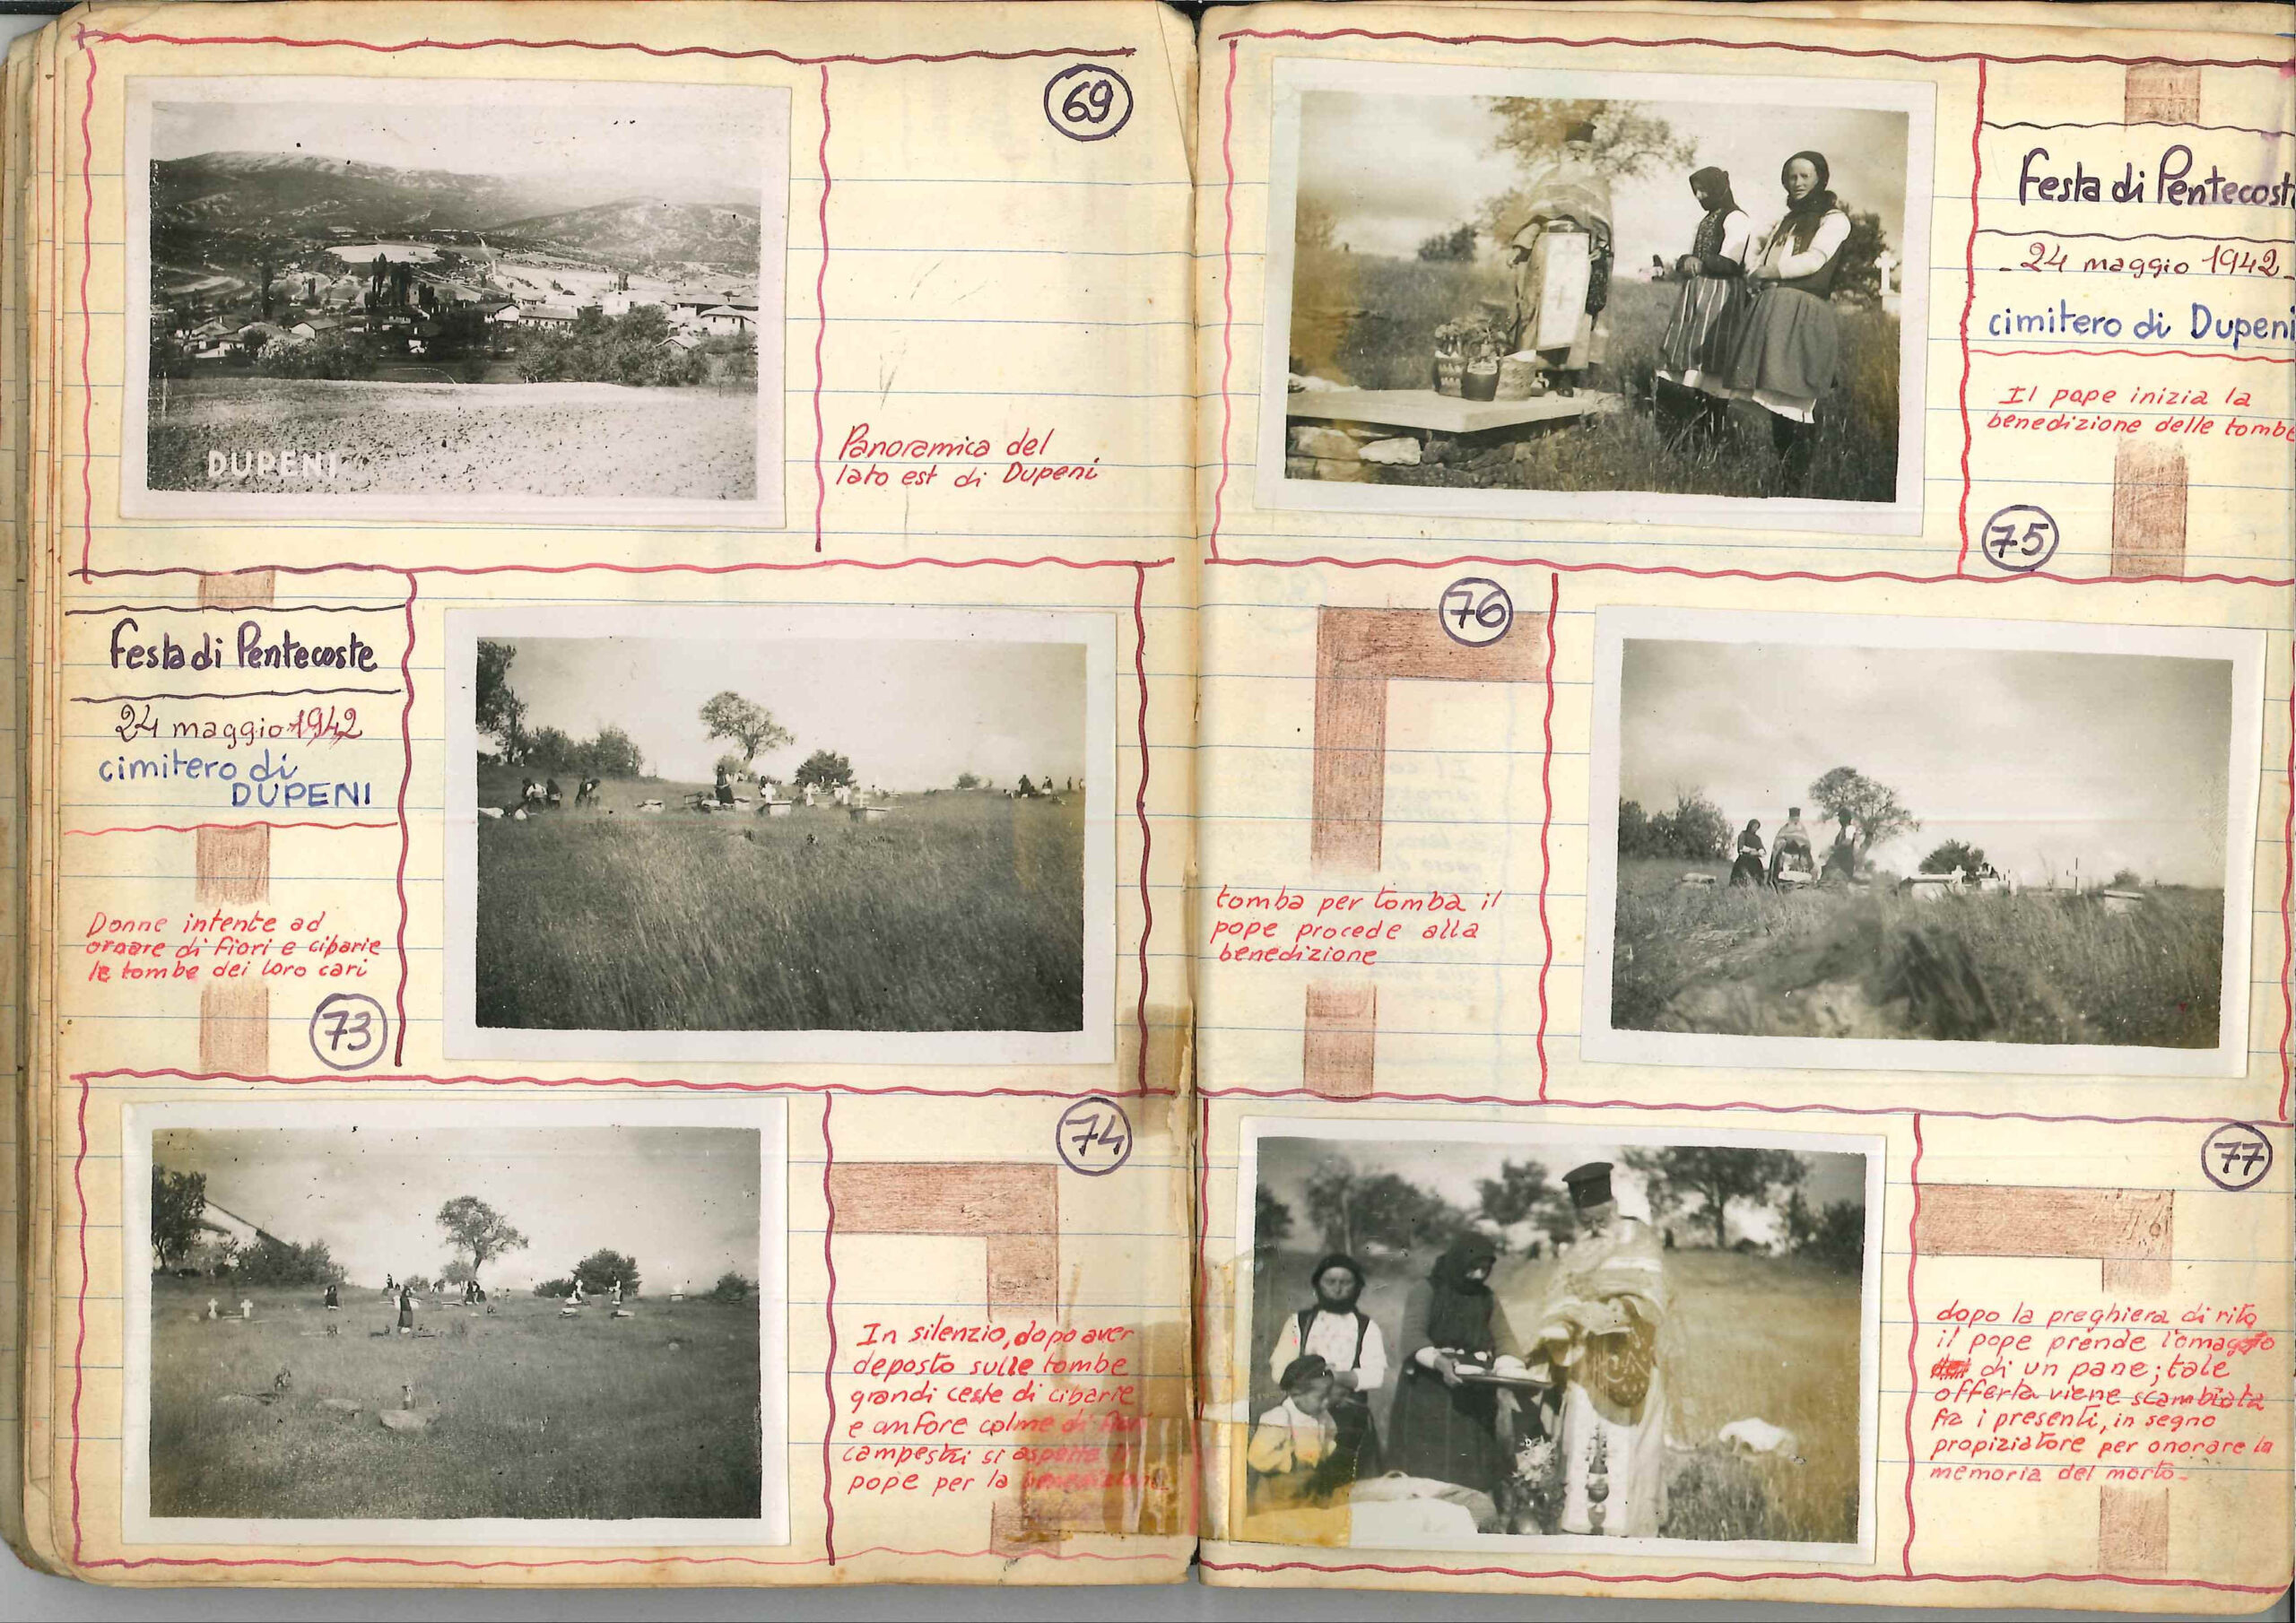 69
DUPENI
Panoramica del
lato est di Dupeni
Festa di Pentecoste
24 maggio 1942
cimitero di
DUPENI
Donne intente ad
ornare di fiori e cibarie
le tombe dei loro cari
73
74
In silenzio, dopo aver
deposto sulle tombe
grandi ceste di cibarie
e anfore colme di fiori
campestri si aspetta il
pope per la benedizione
Festa di Pentecoste
- 24 maggio 1942 -
cimitero di Dupeni
Il pope inizia la
benedizione delle tombe
75
76
tomba per tomba il
pope procede alla
benedizione
77
dopo la preghiera di rito
il pope prende l'omaggio
di un pane; tale
offerta viene scambiata
fra i presenti, in segno
propiziatore per onorare la
memoria del morto-